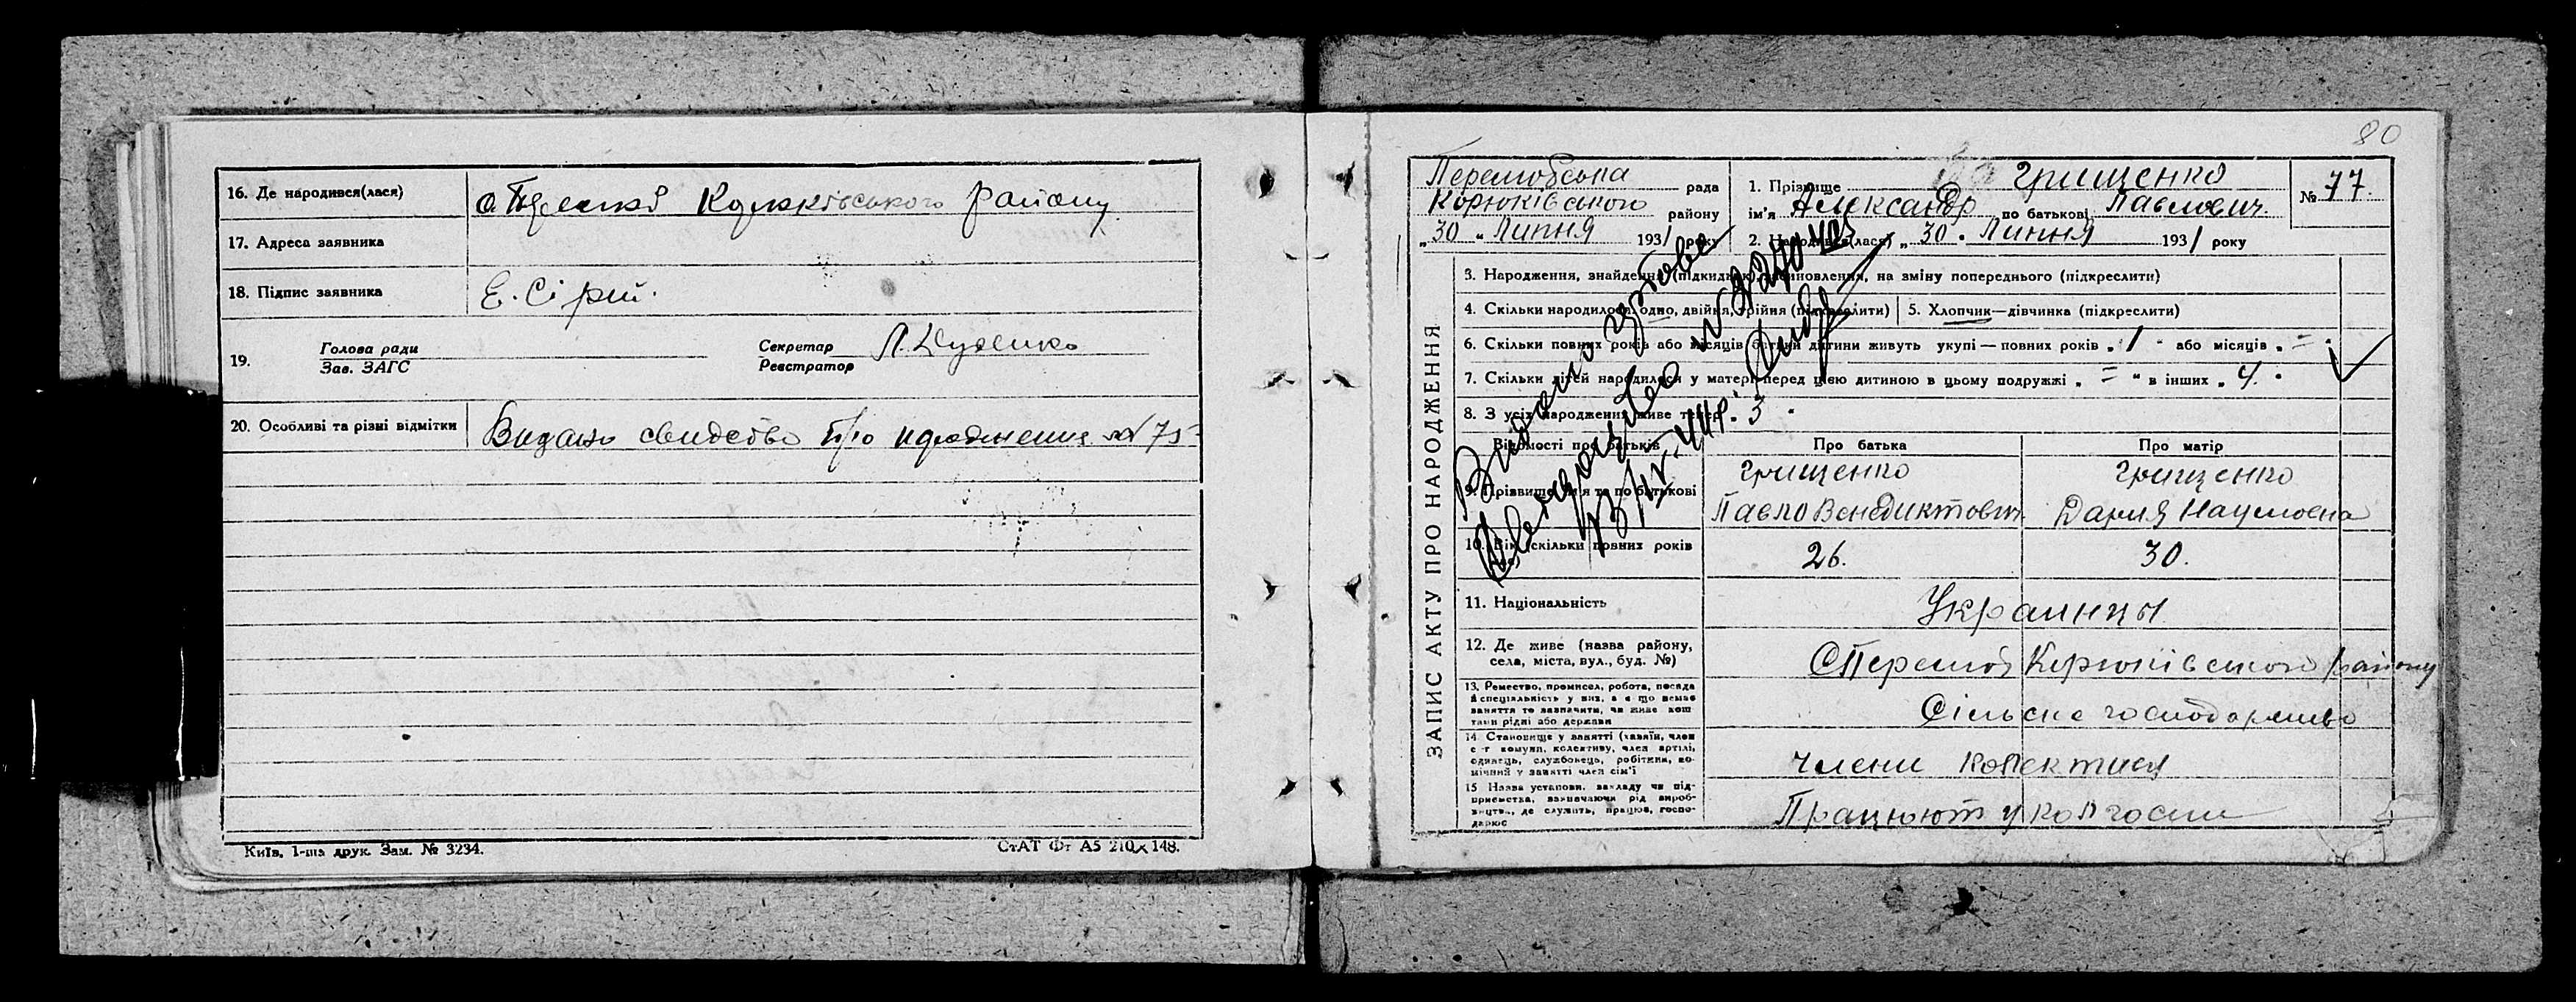 16. Де народився(лася)
Корюківського району
17. Адреса заявника
18. Підпис заявника
Е. Сірий.
19. Голова ради
Зав. ЗАГС
Секретар
Реєстратор
20. Особливі та різні відмітки
Видано свидетво про народження № 75
Київ, 1-ша друк. Зам. № 3234.
СтАТ Фт А5 210×148.
80
ЗАПИС АКТУ ПРО НАРОДЖЕННЯ
Перелюбська рада
Корюківського району
„30 „ Липня 1931 року
1. Прізвище Грищенко
ім'я Александр по батькові Павлович.
2. Народився(лася) „30 „ Липня 1931 року
№ 77.
3. Народження, знайдення (підкидька), усиновлення, на зміну попереднього (підкреслити)
4. Скільки народилося: одно, двійня, трійня (підкреслити)
5. Хлопчик—дівчинка (підкреслити)
6. Скільки повних років або місяців батьки дитини живуть укупі — повних років „ 1 “ або місяців „ = “
7. Скільки дітей народилося у матері перед цією дитиною в цьому подружжі „ = “ в інших „ 4. “
8. З усіх народжених живе тепер 3
Видано
Відомості про батьків
Про батька
Про матір
9. Прізвище, ім'я та по батькові
Грищенко
Павло Венедиктович
Грищенко
Дария Наумовна
10. Вік, скільки повних років
26.
30.
11. Національність
Украинцы
12. Де живе (назва району,
села, міста, вул., буд. №)
С Перелюб Корюківського району
13. Ремество, промисел, робота, посада
й спеціяльність у них, а є що немає
заняття то зазначити, чи живе кош
тами рідні або держави
Сільске господарство
14. Становище у занятті (хазяїн, член
с-г комуни, колективу, член артілі,
одинець, службовець, робітник, по-
мічний у занятті член сім'ї
Члени колектива
15 Назва установи, закладу чи під-
приємства, зазначаючи рід вироб-
ництва, де служить, працює, госпо-
дарює
Працюют у колгоспи